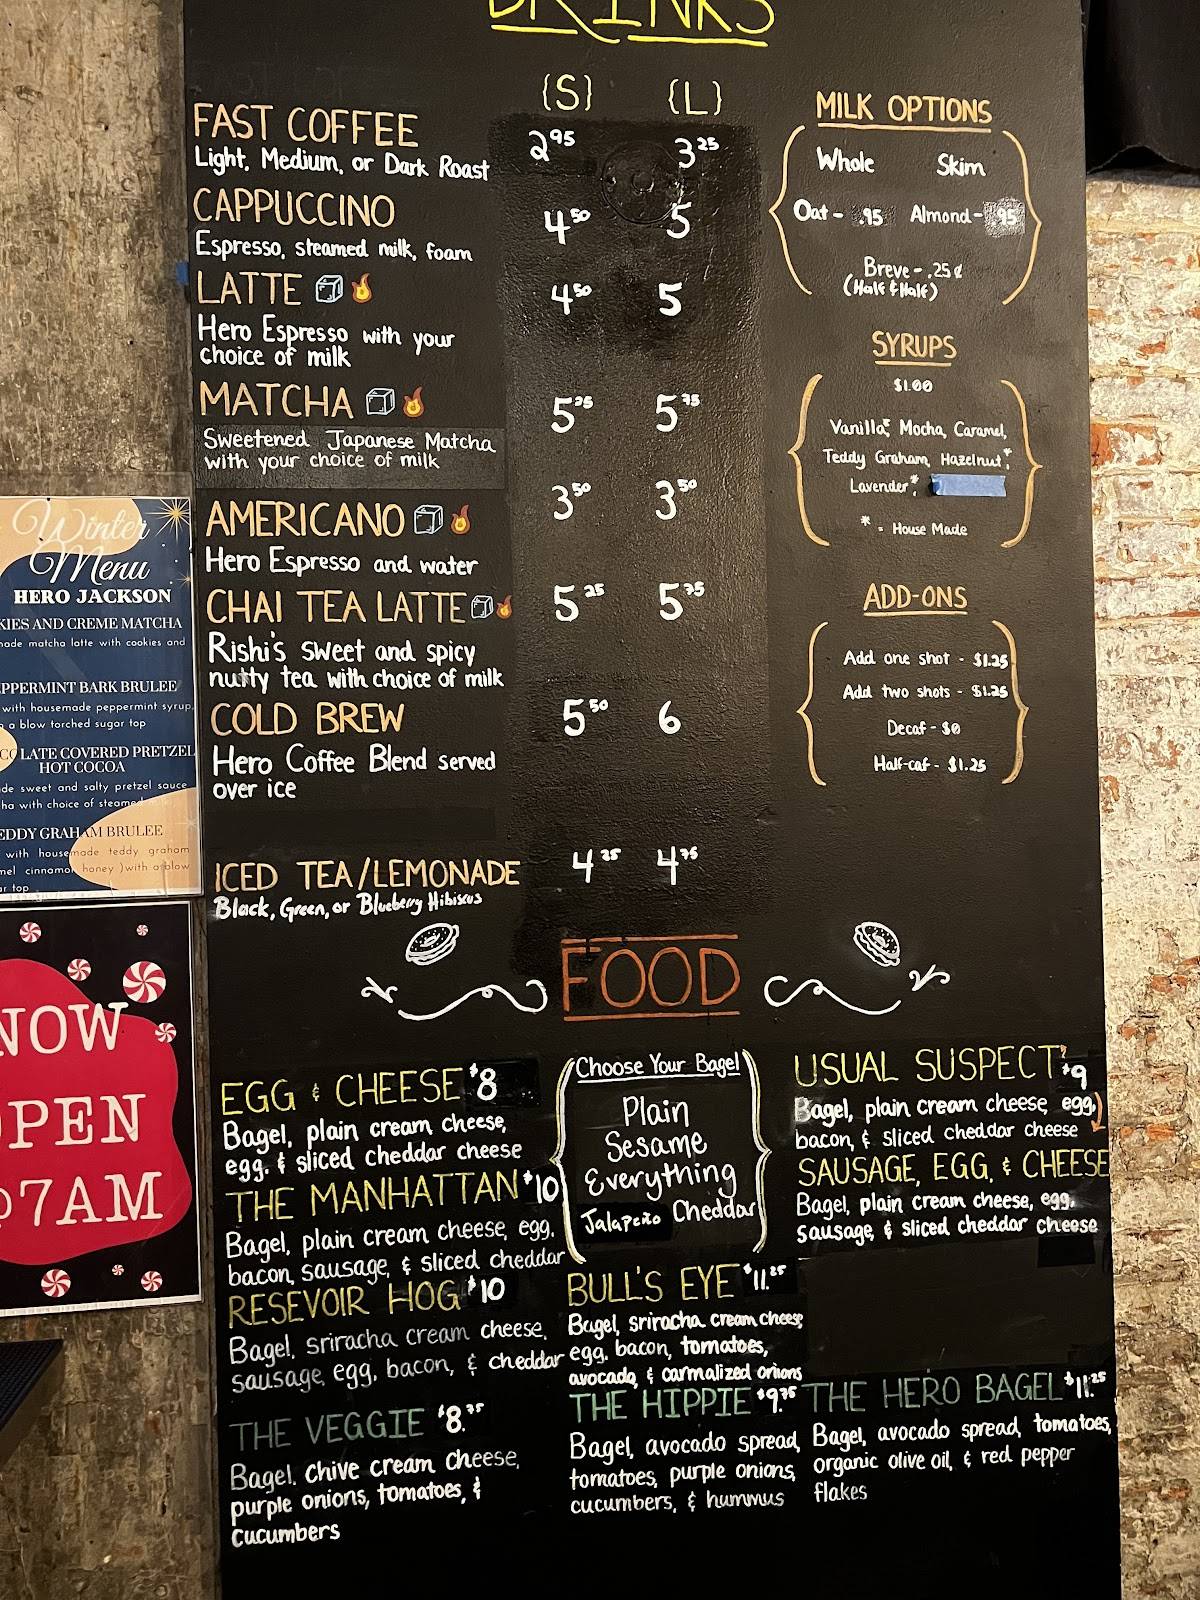 DRINKS
{S} {L}
FAST COFFEE 2.95 3.25
Light, Medium, or Dark Roast
CAPPUCCINO 4.50 5
Espresso, steamed milk, foam
LATTE 4.50 5
Hero Espresso with your
choice of milk
MATCHA 5.25 5.75
Sweetened Japanese Matcha
with your choice of milk
AMERICANO 3.50 3.50
Hero Espresso and water
CHAI TEA LATTE 5.25 5.75
Rishi's sweet and spicy
nutty tea with choice of milk
COLD BREW 5.50 6
Hero Coffee Blend served
over ice
ICED TEA/LEMONADE 4.25 4.75
Black, Green, or Blueberry Hibiscus
MILK OPTIONS
Whole Skim
Oat - .95 Almond - .95
Breve - .25¢
(Half & Half)
SYRUPS
$1.00
Vanilla*, Mocha, Caramel,
Teddy Graham, Hazelnut*,
Lavender*,
* = House Made
ADD-ONS
Add one shot - $1.25
Add two shots - $1.25
Decaf - $0
Half-caf - $1.25
FOOD
EGG & CHEESE $8
Bagel, plain cream cheese,
egg, & sliced cheddar cheese
THE MANHATTAN $10
Bagel, plain cream cheese, egg,
bacon, sausage, & sliced cheddar
RESEVOIR HOG $10
Bagel, sriracha cream cheese,
sausage, egg, bacon, & cheddar
THE VEGGIE $8.75
Bagel, chive cream cheese,
purple onions, tomatoes, &
cucumbers
Choose Your Bagel
Plain
Sesame
Everything
Jalapeño Cheddar
BULL'S EYE $11.25
Bagel, sriracha cream cheese,
egg, bacon, tomatoes,
avocado, & carmalized onions
THE HIPPIE $9.75
Bagel, avocado spread,
tomatoes, purple onions,
cucumbers, & hummus
USUAL SUSPECT $9
Bagel, plain cream cheese, egg,
bacon, & sliced cheddar cheese
SAUSAGE, EGG, & CHEESE
Bagel, plain cream cheese, egg,
sausage, & sliced cheddar cheese
THE HERO BAGEL $11.25
Bagel, avocado spread, tomatoes,
organic olive oil, & red pepper
flakes
Winter
Menu
HERO JACKSON
KIES AND CREME MATCHA
made matcha latte with cookies and
PPERMINT BARK BRULEE
with housemade peppermint syrup,
a blow torched sugar top
COLATE COVERED PRETZEL
HOT COCOA
de sweet and salty pretzel sauce
ha with choice of steamed
EDDY GRAHAM BRULEE
with housemade teddy graham
mel cinnamon honey )with a blow
ar top
NOW
OPEN
@7AM